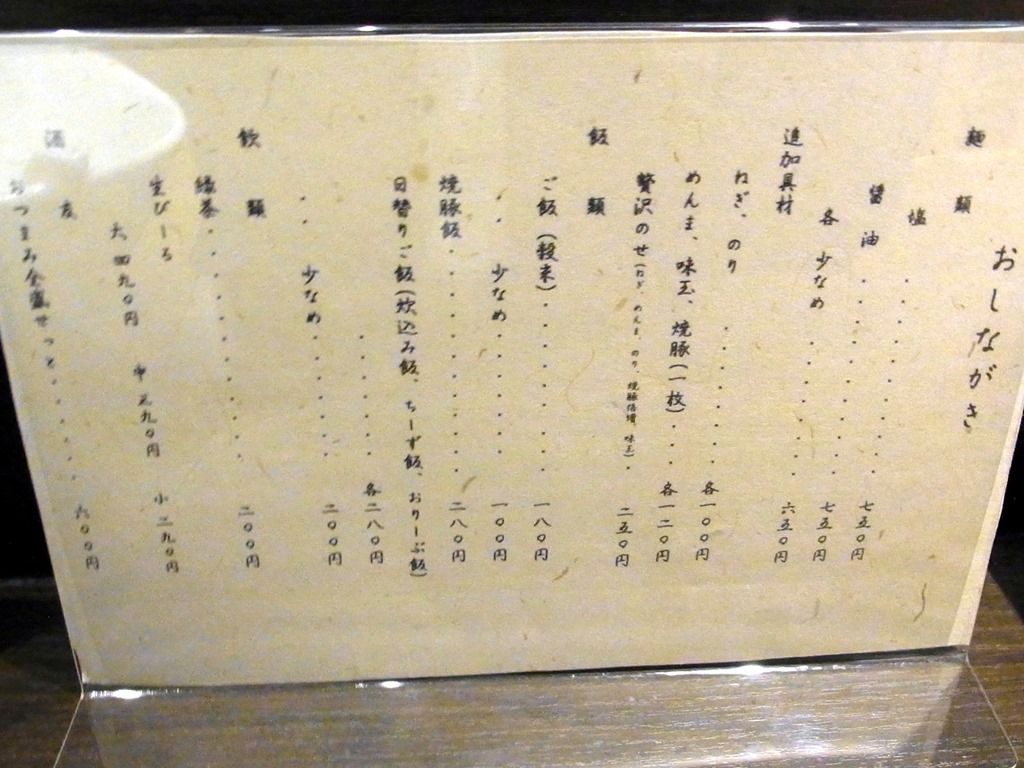 おしながき
麺類
塩・・・・・・・・・・七五〇円
醤油・・・・・・・・・七五〇円
各 少なめ・・・・・・六五〇円
追加具材
ねぎ、のり・・・・・・・各一〇〇円
めんま、味玉、焼豚(一枚)・・・各一二〇円
贅沢のせ(ねぎ、めんま、のり、焼豚倍増、味玉)・二五〇円
飯類
ご飯(穀米)・・・・・・・・・一八〇円
〃 少なめ・・・・・・・一〇〇円
焼豚飯・・・・・・・・・・二八〇円
日替りご飯(炊込み飯、ちーず飯、おりーぶ飯)
・・・・・・各二八〇円
〃 少なめ・・・・・・・二〇〇円
飲類
緑茶・・・・・・・・・・・二〇〇円
生びーる
大 四九〇円 中 三九〇円 小 二九〇円
酒肴
おつまみ全盛せっと・・・・・・六〇〇円